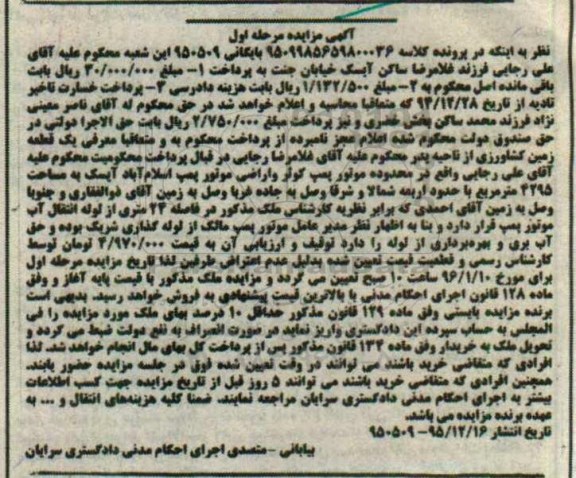 آگهی مزایده مرحله اول
نظر به اینکه در پرونده کلاسه ۹۵۰۹۹۸۵۶۵۹۸۰۰۰۳۶ بایگانی ۹۵۰۵۰۹ این شعبه محکوم علیه آقای
علی رجایی فرزند غلامرضا ساکن آیسک خیابان جنت به پرداخت ۱- مبلغ ۳۰/۰۰۰/۰۰۰ ریال بابت
باقی مانده اصل محکوم به ۲- مبلغ ۱/۱۳۲/۵۰۰ ریال بابت هزینه دادرسی ۳- پرداخت خسارت تاخیر
تادیه از تاریخ ۹۴/۱۲/۲۸ که متعاقبا محاسبه و اعلام خواهد شد در حق محکوم له آقای ناصر معینی
نژاد فرزند محمد ساکن بخش خضری و نیز پرداخت مبلغ ۲/۷۵۰/۰۰۰ ریال بابت حق الاجرا دولتی در
حق صندوق دولت محکوم شده اعلام عجز نامبرده از پرداخت محکوم به و متعاقبا معرفی یک قطعه
زمین کشاورزی از ناحیه پدر محکوم علیه آقای غلامرضا رجایی در قبال پرداخت محکومیت محکوم علیه
آقای علی رجایی واقع در محدوده موتور پمپ کوثر واراضی موتور پمپ اسلام‌آباد آیسک به مساحت
۴۲۹۵ مترمربع با حدود اربعه شمالا و شرقا وصل به جاده غربا وصل به زمین آقای ذوالفقاری و جنوبا
وصل به زمین آقای احمدی که برابر نظریه کارشناس ملک مذکور در فاصله ۲۴ متری از لوله انتقال آب
موتور پمپ قرار دارد و بنا به اظهار نظر مدیر عامل موتور پمپ مالک از لوله گذاری شریک بوده و حق
آب بری و بهره‌برداری از لوله را دارد توقیف و ارزیابی آن به قیمت ۴/۹۷۰/۰۰۰ تومان توسط
کارشناس رسمی و قطعیت قیمت تعیین شده بدلیل عدم اعتراض طرفین لذا تاریخ مزایده مرحله اول
برای مورخ ۹۶/۱/۱۰ ساعت ۱۰ صبح تعیین می گردد و مزایده ملک مذکور با قیمت پایه آغاز و وفق
ماده ۱۲۸ قانون اجرای احکام مدنی با بالاترین قیمت پیشنهادی به فروش خواهد رسید. بدیهی است
برنده مزایده بایستی وفق ماده ۱۲۹ قانون مذکور حداقل ۱۰ درصد بهای ملک مورد مزایده را فی
المجلس به حساب سپرده این دادگستری واریز نماید در صورت انصراف به نفع دولت ضبط می گردد و
تحویل ملک به خریدار وفق ماده ۱۳۴ قانون مذکور پس از پرداخت کل بهای مال انجام خواهد شد. لذا
افرادی که متقاضی خرید باشند می توانند در وقت تعیین شده فوق در جلسه مزایده حضور یابند.
همچنین افرادی که متقاضی خرید باشند می توانند ۵ روز قبل از تاریخ مزایده جهت کسب اطلاعات
بیشتر به اجرای احکام مدنی دادگستری سرایان مراجعه نمایند. ضمنا کلیه هزینه‌های انتقال و ... به
عهده برنده مزایده می باشد.
تاریخ انتشار ۹۵/۱۲/۱۶- ۹۵۰۵۰۹
بیابانی - متصدی اجرای احکام مدنی دادگستری سرایان